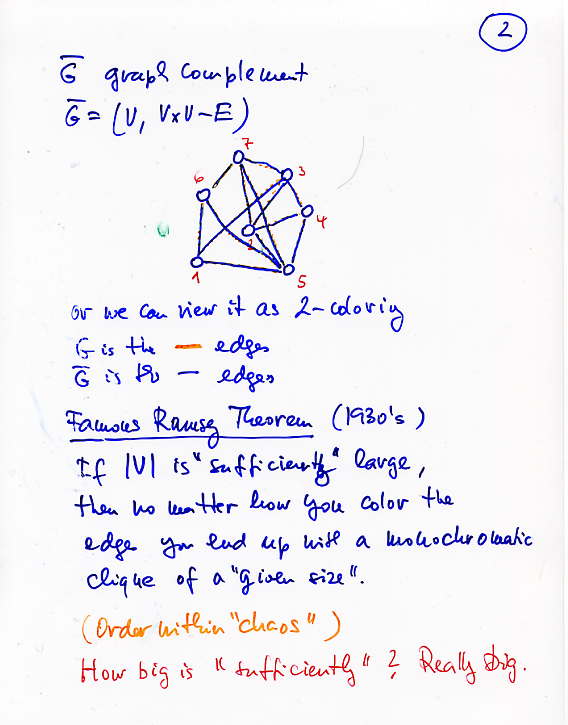 2
G̅ graph complement
G̅ = (V, V×V−E)
7
3
6
4
2
1
5
or we can view it as 2-coloring
G is the — edges
G̅ is the — edges
Famous Ramsey Theorem (1930's)
If |V| is "sufficiently" large,
then no matter how you color the
edge you end up with a monochromatic
clique of a "given size".
(Order within "chaos")
How big is "sufficiently"? Really big.